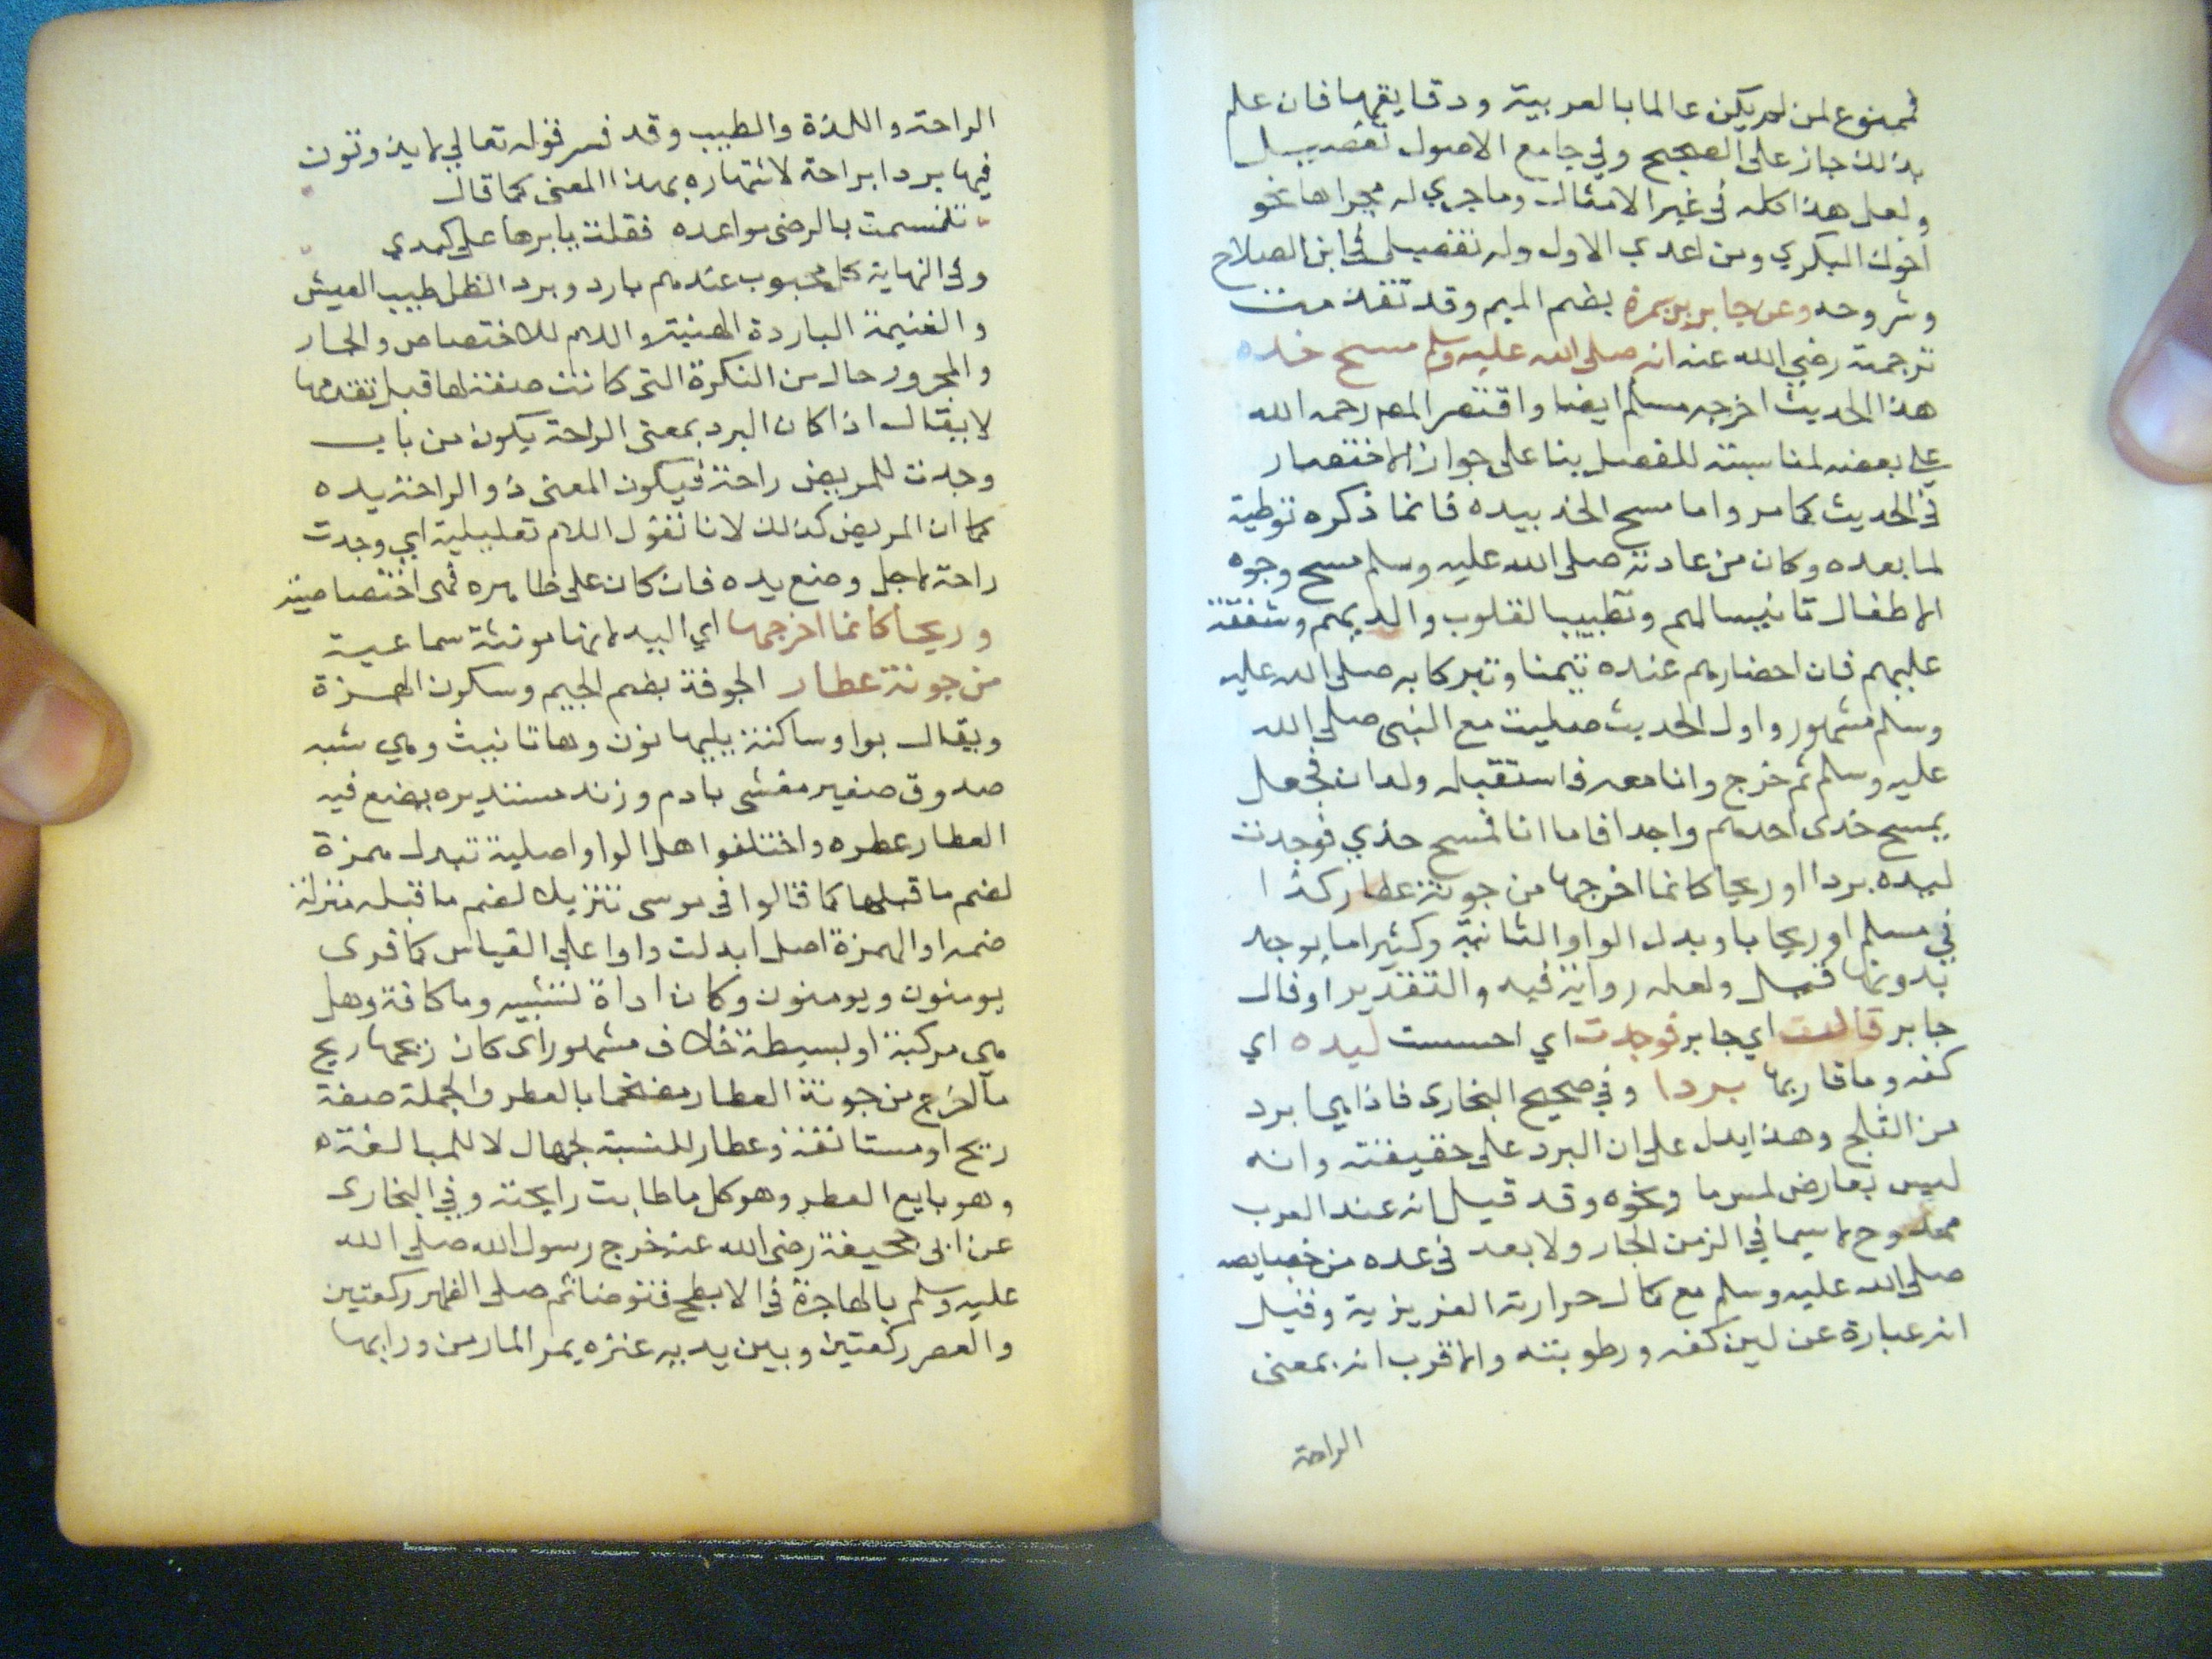 فممنوع لمن لم يكن عالما بالعربية ودقايقها فان علم
بذلك جاز على الصحيح وفي جامع الاصول تفصيل
ولعل هذا كله في غير الامثال وما جري له مجراها نحو
اخوك البكري ومن اعدي الاول وله تفصيل في ابن الصلاح
وشروحه وعن جابر بن سمرة بضم الميم وقد تقدمت
ترجمته رضي الله عنه انه صلى الله عليه وسلم مسح خده
هذا الحديث اخرجه مسلم ايضا واقتصر المص رحمه الله
على بعضه لمناسبته للفصل بنا على جواز الاختصار
في الحديث كما مر واما مسح الخد بيده فانما ذكره توطية
لما بعده وكان من عادته صلى الله عليه وسلم مسح وجوه
الاطفال تانيسا لهم وتطييبا لقلوب والديهم وشفقة
عليهم فان احضارهم عنده تيمنا وتبركا به صلى الله عليه
وسلم مشهور واول الحديث صليت مع النبي صلى الله
عليه وسلم ثم خرج وانا معه فاستقبله ولدان فجعل
يمسح خدى احدهم واحدا فاما انا فمسح خدي فوجدت
ليده بردا او ريحا كانما اخرجها من جونة عطار كذا
في مسلم او ريحا باو بدل الواو الثانية وكثيرا ما يوجد
بدونها قيل ولعله رواية فيه والتقدير او قال
جابر قال اي جابر فوجدت اي احسست ليده اي
كفه وما قاربها بردا وفي صحيح البخارى فاذا هي ابرد
من الثلج وهذا يدل على ان البرد على حقيقته وانه
ليس بعارض لمس ما ونحوه وقد قيل انه عند العرب
ممدوح لاسيما في الزمن الحار ولا بعد في عده من خصايصه
صلى الله عليه وسلم مع كمال حرارته الغريزية وقيل
انه عبارة عن لين كفه ورطوبته والاقرب انه بمعنى
الراحة
الراحة واللذة والطيب وقد فسر قوله تعالي لا يذوقون
فيها بردا براحة لاشتهاره بهذا المعنى كما قال
بالرضى مواعده فقلت يا بردها على كبدي
وفي النهاية كل محبوب عندهم بارد وبرد الظل طيب العيش
والغنيمة الباردة الهنية واللام للاختصاص والجار
والمجرور حال من النكرة التى كانت صفة لها قبل تقدمها
لا يقال اذا كان البرد بمعنى الراحة يكون من باب
وجدت للمريض راحة فيكون المعنى ذو الراحة يده
كما ان المريض كذلك لانا نقول اللام تعليلية اي وجدت
راحة لاجل وضع يده فان كان على ظاهره فهى اختصاصية
وريحا كانما اخرجها اي اليد لانها مونثة سماعية
من جونة عطار الجونة بضم الجيم وسكون الهمزة
ويقال بواو ساكنة يليها نون وها تانيث وهي شبه
صدوق صغير مغشى بادم وزند مستديره يضع فيه
العطار عطره واختلفوا هل الواو اصلية تبدل همزة
لضم ما قبلها كما قالوا في موسى تنزيلا لضم ما قبله منزلة
ضمه او الهمزة اصل ابدلت واوا على القياس كما قرى
يومنون ويومنون وكان اداة لتشبيه وما كافة وهل
هي مركبة او بسيطة خلاف مشهور اى كان ريحها ريح
ما اخرج من جونة العطار مضخما بالعطر والجملة صفة
ريح او مستانفة وعطار للنسبة لجهال لا للمبالغة
وهو بايع العطر وهو كل ما طابت رايحته وفي البخارى
عن ابى جحيفة رضى الله عنه خرج رسول الله صلى الله
عليه وسلم بالهاجرة في الابطح فتوضا ثم صلى الظهر ركعتين
والعصر ركعتين وبين يديه عنزه يمر المار من ورايها